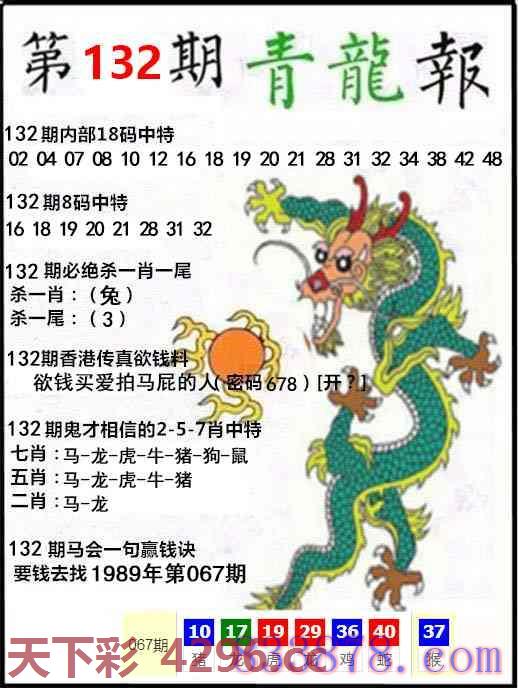 第132期青龍報
132期内部18码中特
02 04 07 08 10 12 16 18 19 20 21 28 31 32 34 38 42 48
132期8码中特
16 18 19 20 21 28 31 32
132期必绝杀一肖一尾
杀一肖：（兔）
杀一尾：（3）
132期香港传真欲钱料
欲钱买爱拍马屁的人(密码678）[开？]
132期鬼才相信的2-5-7肖中特
七肖：马-龙-虎-牛-猪-狗-鼠
五肖：马-龙-虎-牛-猪
二肖：马-龙
132期马会一句赢钱诀
要钱去找1989年第067期
067期 10 17 19 29 36 40 37
猪 龙 虎 龙 鸡 蛇 猴
天下彩 4296.cc